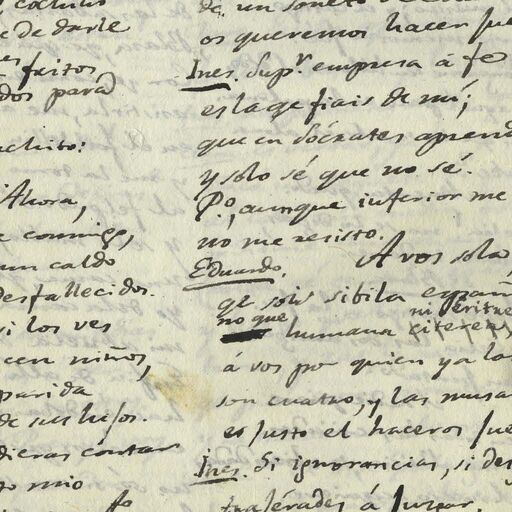 e de darle
dos para
Ahora,
e conmigo,
un caldo
desfallecidos.
si los ves
cen niños,
parida
de sus hijos.
dieras contar
to mio
de un soneto
os queremos hacer jue
Ines. Supr. empresa á fe
es la qe fiais de mí;
que en Sócrates aprend
y solo sé que no sé.
Po, aunque inferior me
no me resisto.
Eduardo. A vos sola,
qe sois sibila españ
no que humana
á vos por quien ya la
son cuatro, y las musa
es justo el haceros jue
Ines. Si ignorancias, si des
á juzgar.